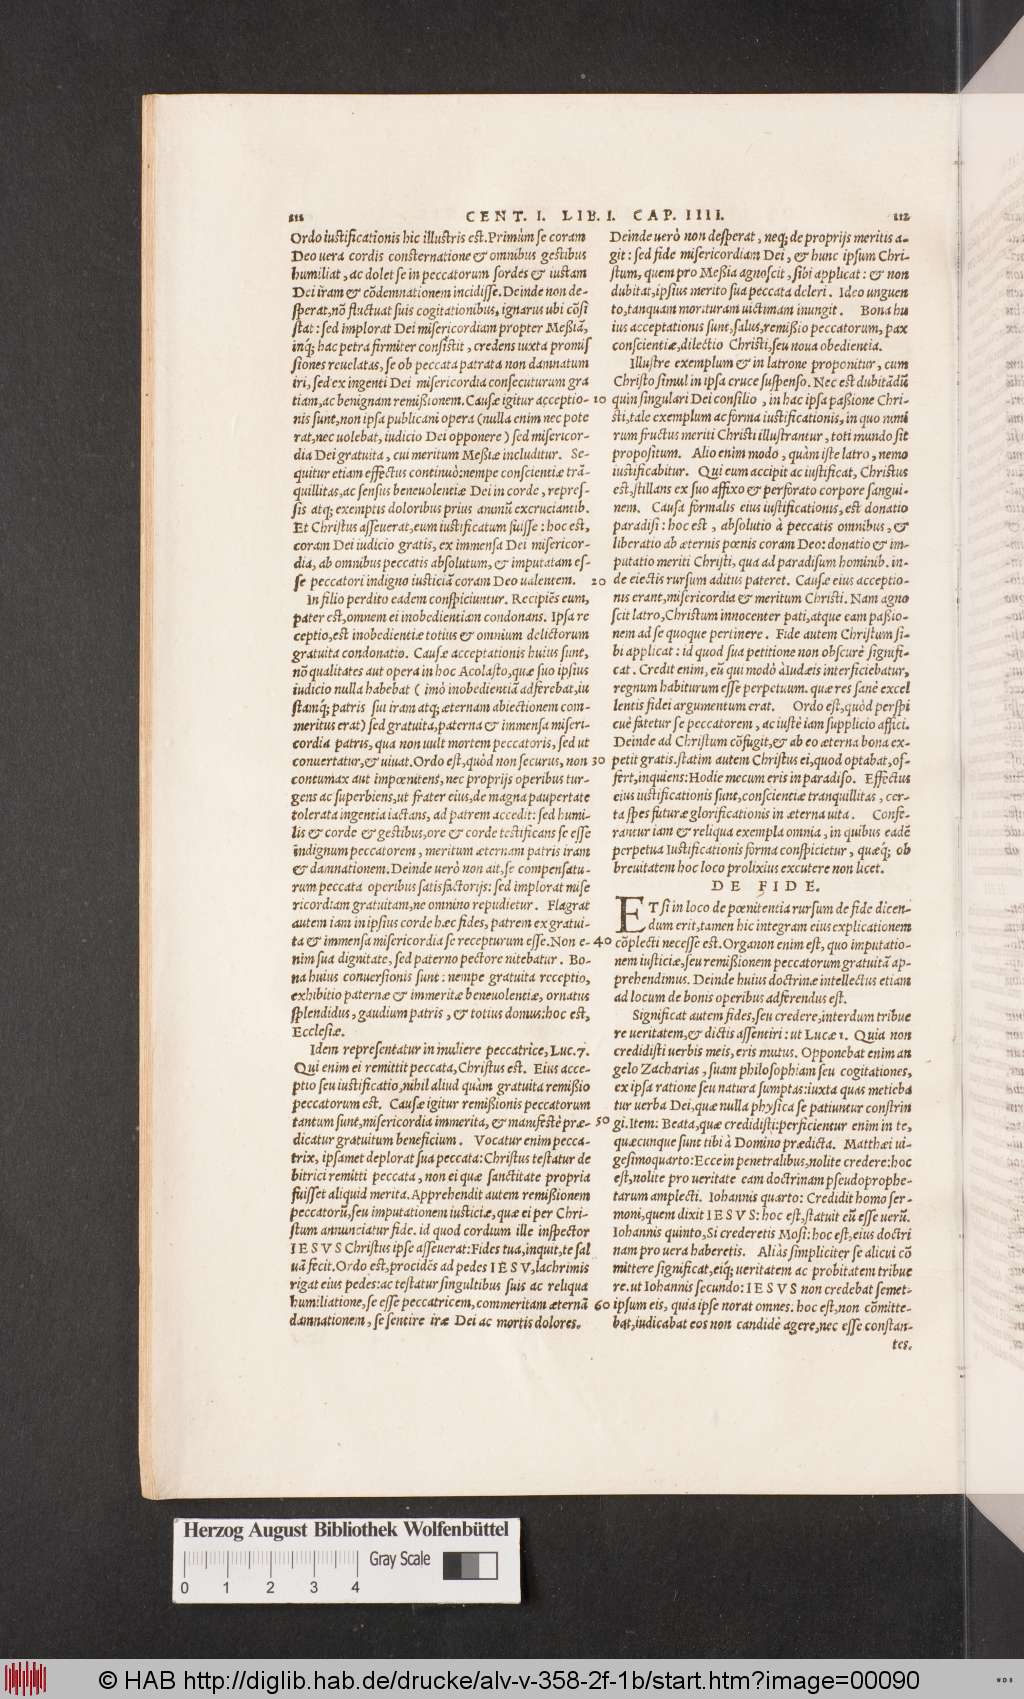 111 CENT. I. LIB. I. CAP. IIII. 112
Ordo iustificationis hic illustris est. Primùm se coram
Deo uera cordis consternatione & omnibus gestibus
humiliat, ac dolet se in peccatorum sordes & iustam
Dei iram & cõdemnationem incidisse. Deinde non de-
sperat, nõ fluctuat suis cogitationibus, ignarus ubi cõsi
stat: sed implorat Dei misericordiam propter Meßiã,
inq́; hac petra firmiter consistit, credens iuxta promis
siones reuelatas, se ob peccata patrata non damnatum
iri, sed ex ingenti Dei misericordia consecuturum gra
tiam, ac benignam remißionem. Causæ igitur acceptio- 10
nis sunt, non ipsa publicani opera (nulla enim nec pote
rat, nec uolebat, iudicio Dei opponere) sed misericor-
dia Dei gratuita, cui meritum Meßiæ includitur. Se-
quitur etiam effectus continuò: nempe conscientiæ trã-
quillitas, ac sensus beneuolentiæ Dei in corde, repres-
sis atq; exemptis doloribus prius animũ excruciantib.
Et Christus asseuerat, eum iustificatum fuisse: hoc est,
coram Dei iudicio gratis, ex immensa Dei misericor-
dia, ab omnibus peccatis absolutum, & imputatam es-
se peccatori indigno iusticiã coram Deo ualentem. 20
In filio perdito eadem conspiciuntur. Recipiẽs eum,
pater est, omnem ei inobedientiam condonans. Ipsa re
ceptio, est inobedientiæ totius & omnium delictorum
gratuita condonatio. Causæ acceptationis huius sunt,
nõ qualitates aut opera in hoc Acolasto, quæ suo ipsius
iudicio nulla habebat ( imò inobedientiã adferebat, iu
stamq́; patris sui iram atq; æternam abiectionem com-
meritus erat) sed gratuita, paterna & immensa miseri-
cordia patris, qua non uult mortem peccatoris, sed ut
conuertatur, & uiuat. Ordo est, quòd non securus, non 30
contumax aut impœnitens, nec proprijs operibus tur-
gens ac superbiens, ut frater eius, de magna paupertate
tolerata ingentia iactans, ad patrem accedit: sed humi-
lis & corde & gestibus, ore & corde testificans se esse
indignum peccatorem, meritum æternam patris iram
& damnationem. Deinde uerò non ait, se compensatu-
rum peccata operibus satisfactorijs: sed implorat mise
ricordiam gratuitam, ne omnino repudietur. Flagrat
autem iam in ipsius corde hæc fides, patrem ex gratui-
ta & immensa misericordia se recepturum esse. Non e- 40
nim sua dignitate, sed paterno pectore nitebatur. Bo-
na huius conuersionis sunt: nempe gratuita receptio,
exhibitio paternæ & immeritæ beneuolentiæ, ornatus
splendidus, gaudium patris, & totius domus: hoc est,
Ecclesiæ.
Idem repræsentatur in muliere peccatrice, Luc. 7.
Qui enim ei remittit peccata, Christus est. Eius acce-
ptio seu iustificatio, nihil aliud quàm gratuita remißio
peccatorum est. Causæ igitur remißionis peccatorum
tantum sunt, misericordia immerita, & manifestè præ- 50
dicatur gratuitum beneficium. Vocatur enim pecca-
trix, ipsamet deplorat sua peccata: Christus testatur de
bitrici remitti peccata, non ei quæ sanctitate propria
fuisset aliquid merita. Apprehendit autem remißionem
peccatorũ, seu imputationem iusticiæ, quæ ei per Chri-
stum annunciatur fide. id quod cordium ille inspector
IESVS Christus ipse asseuerat: Fides tua, inquit, te sal
uã fecit. Ordo est, procidẽs ad pedes IESV, lachrimis
rigat eius pedes: ac testatur singultibus suis ac reliqua
humiliatione, se esse peccatricem, commeritam æternã 60
damnationem, se sentire iræ Dei ac mortis dolores.
Deinde uerò non desperat, neq; de proprijs meritis a-
git: sed fide misericordiam Dei, & hunc ipsum Chri-
stum, quem pro Meßia agnoscit, sibi applicat: & non
dubitat, ipsius merito sua peccata deleri. Ideo unguen
to, tanquam morituram uictimam inungit. Bona hu
ius acceptationis sunt, salus, remißio peccatorum, pax
conscientiæ, dilectio Christi, seu noua obedientia.
Illustre exemplum & in latrone proponitur, cum
Christo simul in ipsa cruce suspenso. Nec est dubitãdũ
quin singulari Dei consilio, in hac ipsa paßione Chri-
sti, tale exemplum ac forma iustificationis, in quo nimi
rum fructus meriti Christi illustrantur, toti mundo sit
propositum. Alio enim modo, quàm iste latro, nemo
iustificabitur. Qui eum accipit ac iustificat, Christus
est, stillans ex suo affixo & perforato corpore sangui-
nem. Causa formalis eius iustificationis, est donatio
paradisi: hoc est, absolutio à peccatis omnibus, &
liberatio ab æternis pœnis coram Deo: donatio & im-
putatio meriti Christi, qua ad paradisum hominib. in-
de eiectis rursum aditus pateret. Causæ eius acceptio-
nis erant, misericordia & meritum Christi. Nam agno
scit latro, Christum innocenter pati, atque eam paßio-
nem ad se quoque pertinere. Fide autem Christum si-
bi applicat: id quod sua petitione non obscurè signifi-
cat. Credit enim, eũ qui modò à Iudæis interficiebatur,
regnum habiturum esse perpetuum. quæ res sanè excel
lentis fidei argumentum erat. Ordo est, quòd perspi
cuè fatetur se peccatorem, ac iustè iam supplicio affici.
Deinde ad Christum cõfugit, & ab eo æterna bona ex-
petit gratis. statim autem Christus ei, quod optabat, of-
fert, inquiens: Hodie mecum eris in paradiso. Effectus
eius iustificationis sunt, conscientiæ tranquillitas, cer-
ta spes futuræ glorificationis in æterna uita. Confe-
rantur iam & reliqua exempla omnia, in quibus eadẽ
perpetua Iustificationis forma conspicietur, quæq́; ob
breuitatem hoc loco prolixius excutere non licet.
DE FIDE.
ET si in loco de pœnitentia rursum de fide dicen-
dum erit, tamen hic integram eius explicationem
cõplecti necesse est. Organon enim est, quo imputatio-
nem iusticiæ, seu remißionem peccatorum gratuitã ap-
prehendimus. Deinde huius doctrinæ intellectus etiam
ad locum de bonis operibus adferendus est.
Significat autem fides, seu credere, interdum tribue
re ueritatem, & dictis assentiri: ut Lucæ 1. Quia non
credidisti uerbis meis, eris mutus. Opponebat enim an
gelo Zacharias, suam philosophiam seu cogitationes,
ex ipsa ratione seu natura sumptas: iuxta quas metieba
tur uerba Dei, quæ nulla physica se patiuntur constrin
gi. Item: Beata, quæ credidisti: perficientur enim in te,
quæcunque sunt tibi à Domino prædicta. Matthæi ui-
gesimoquarto: Ecce in penetralibus, nolite credere: hoc
est, nolite pro ueritate eam doctrinam pseudoprophe-
tarum amplecti. Iohannis quarto: Credidit homo ser-
moni, quem dixit IESVS: hoc est, statuit eũ esse uerũ.
Iohannis quinto, Si crederetis Mosi: hoc est, eius doctri
nam pro uera haberetis. Aliàs simpliciter se alicui cõ
mittere significat, eiq́; ueritatem ac probitatem tribue
re. ut Iohannis secundo: IESVS non credebat semet-
ipsum eis, quia ipse norat omnes. hoc est, non cõmitte-
bat, iudicabat eos non candidè agere, nec esse constan-
tes.
Herzog August Bibliothek Wolfenbüttel
Gray Scale
0 1 2 3 4
© HAB http://diglib.hab.de/drucke/alv-v-358-2f-1b/start.htm?image=00090